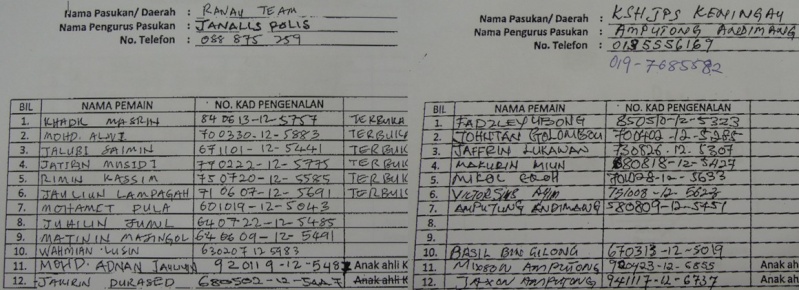 Nama Pasukan/ Daerah : RANAU TEAM
Nama Pengurus Pasukan : JANALIS POLIS
No. Telefon : 088 875 259
BIL NAMA PEMAIN NO. KAD PENGENALAN
1. KHADIL MASLIN 840613-12-5757 TERBUKA
2. MOHD. ALWI 700330-12-5883 TERBUK
3. JALUBI SAIMIN 671101-12-5441 TERBUK
4. JATIAN MASIDI 770222-12-5775 TERBUK
5. RIMIN KASSIM 750720-12-5585 TERBUK
6. JAULIUN LAMPAGAH 710607-12-5691 TERBUK
7. MOHAMET DULA 601019-12-5043
8. JUHILIN JUMIL 640722-12-5485
9. MATININ MAJINGOL 640609-12-5491
10. WAHMIAN LUSIN 630207 12 5983
11. MOHD. ADNAN 920119-12-548 Anak ahli K
12. JAWIRIN DURASED 680502-12- Anak ahli K
Nama Pasukan/ Daerah : KSHJPS KENINGAU
Nama Pengurus Pasukan : AMPUTONG ANDIMANG
No. Telefon : 0135556169
019-7685582
BIL NAMA PEMAIN NO. KAD PENGENALAN
1. FADZLEY UBONG 850510-12-5323
2. JOHNTAN GOLOMBOU 700402-12-5285
3. JAFFRIN LUKANAN 730826-12-5307
4. MAKURIN MIUN 680818-12-5427
5. 701028-12-5633
6. 751008-12-5623
7. AMPUTUNG ANDIMANG 580809-12-5451
8.
9.
10. BASIL BIN GILONG 670313-12-5019
11. MIXSON AMPUTONG 920423-12-5855 Anak ah
12. JAXON AMPUTONG 941117-12-6737 Anak ah